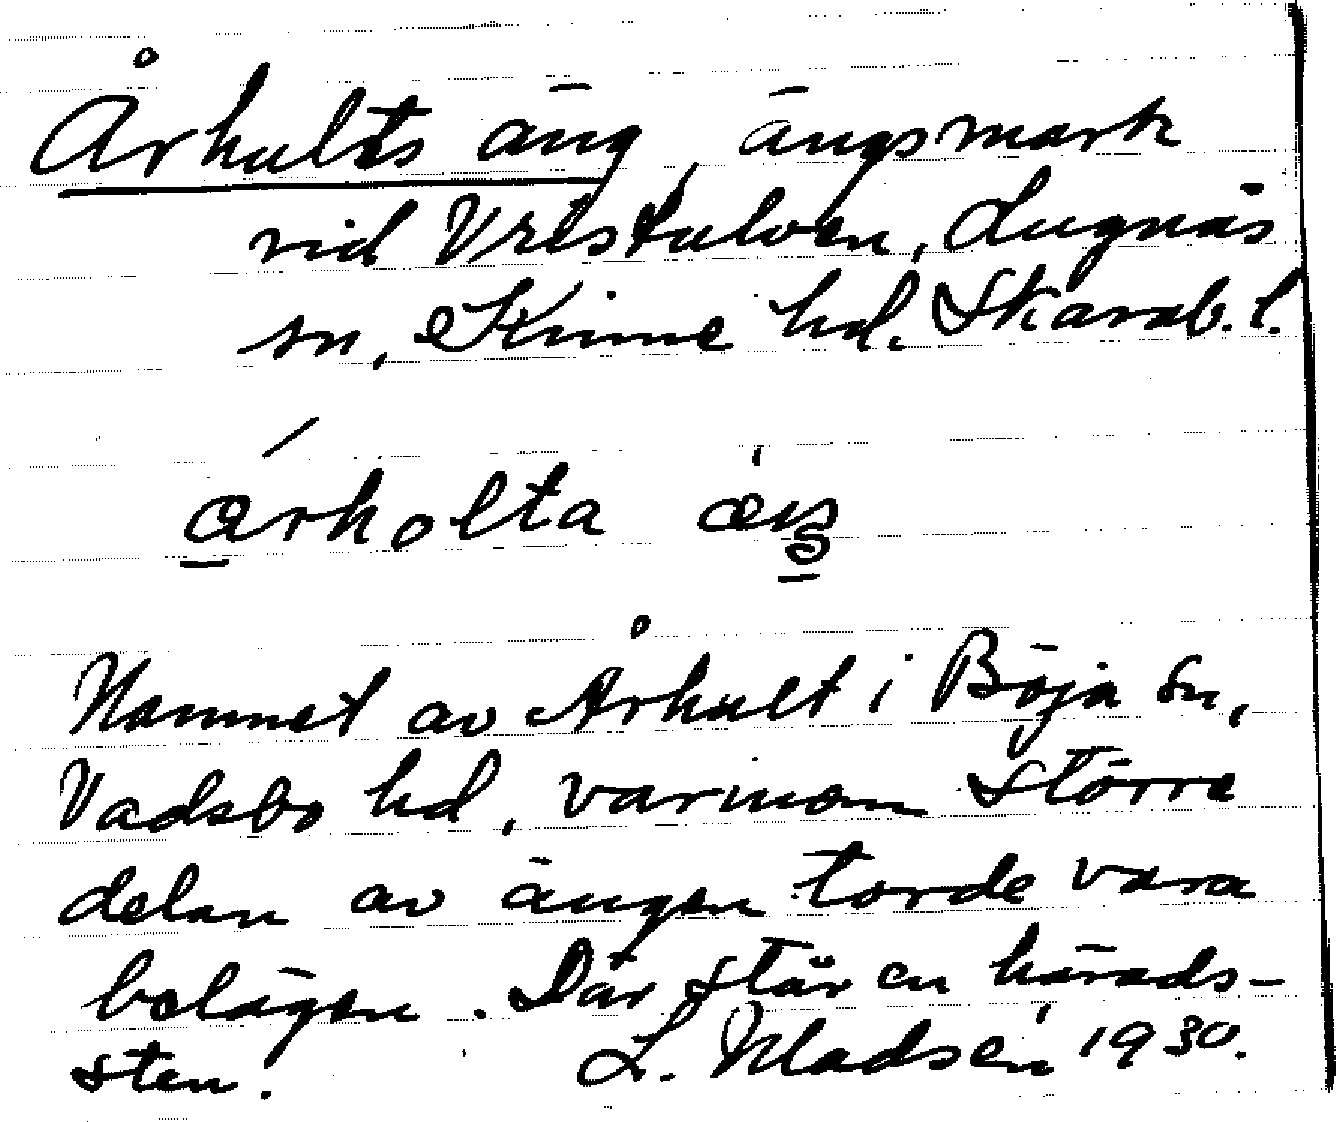 Århults äng, ängsmark
vid Vristulven, Lugnås
sn, Kinne hd. Skarab. l.
årholta äŋ
Namnet av Århult i Böja sn,
Vadsbo hd, varinom större
delen av ängen torde vara
belägen. Där står en härads-
sten. L. Madsén 1930.